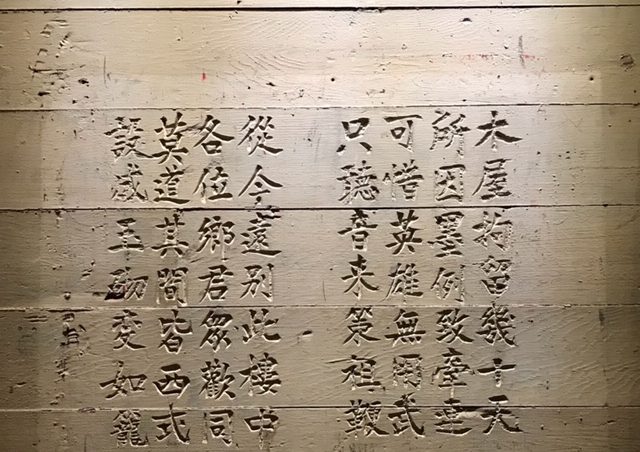 木屋拘留幾十天
所因墨例致牽連
可惜英雄無用武
只聽音来策祖鞭
從今遠別此樓中
各位鄉君眾歡同
莫道其間皆西式
設成玉砌變如籠